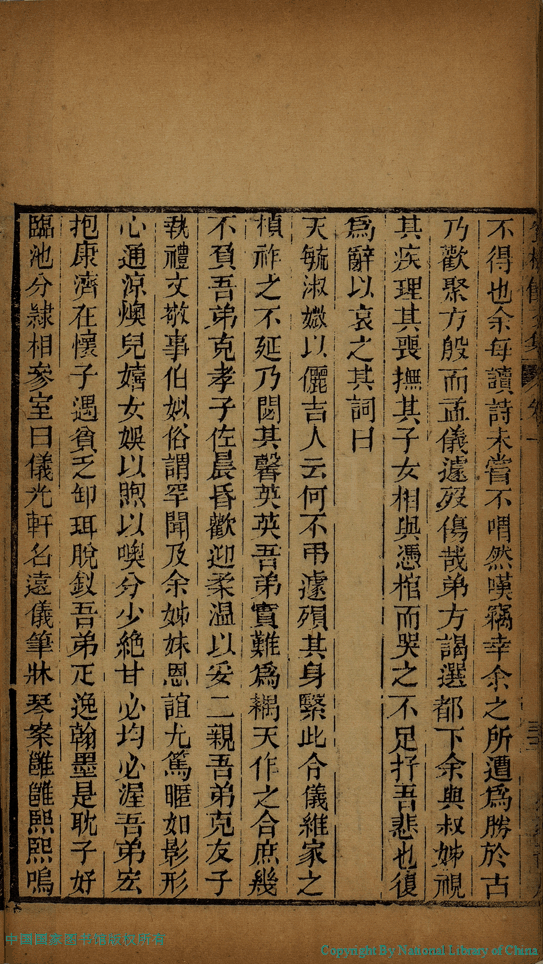 不得也余每讀詩未嘗不喟然嘆竊幸余之所遭爲勝於古
乃歡聚方殷而孟儀遽歿傷哉弟方謁選都下余與叔姊視
其疾理其喪撫其子女相與憑棺而哭之不足抒吾悲也復
爲辭以哀之其詞曰
天毓淑媺以儷吉人云何不弔遽殞其身繄此令儀維家之
楨祚之不延乃閟其馨英英吾弟實難爲耦天作之合庶幾
不負吾弟克孝子佐晨昏歡迎柔溫以妥二親吾弟克友子
執禮文敬事伯姒俗謂罕聞及余姊妹恩誼尤篤暱如影形
心通涼燠兒嬉女娛以煦以噢分少絶甘必均必渥吾弟宏
抱康濟在懷子遇貧乏卸珥脫釵吾弟疋逸翰墨是耽子好
臨池分隷相參室曰儀光軒名遠儀筆牀琴案雝雝熙熙嗚
中国国家图书馆版权所有
Copyright By National Library of China